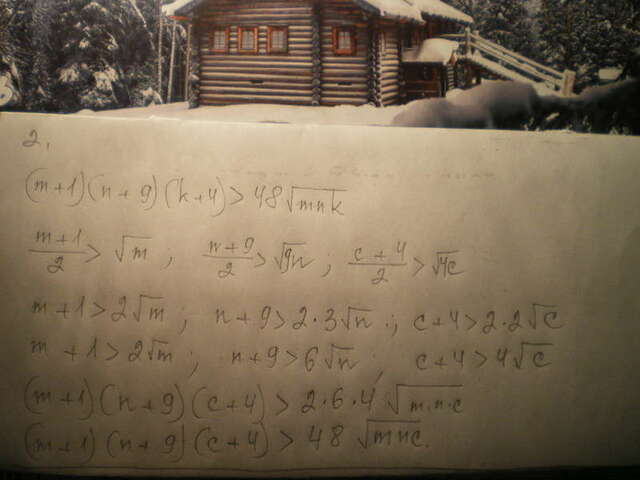 2.
(m+1)(n+9)(k+4)>48√mnk
m+1/2 > √m ; n+9/2 > √9n ; c+4/2 > √4c
m+1>2√m ; n+9>2·3√n ; c+4>2·2√c
m+1>2√m ; n+9>6√n ; c+4>4√c
(m+1)(n+9)(c+4)>2·6·4√m·n·c
(m+1)(n+9)(c+4)>48√mnc.